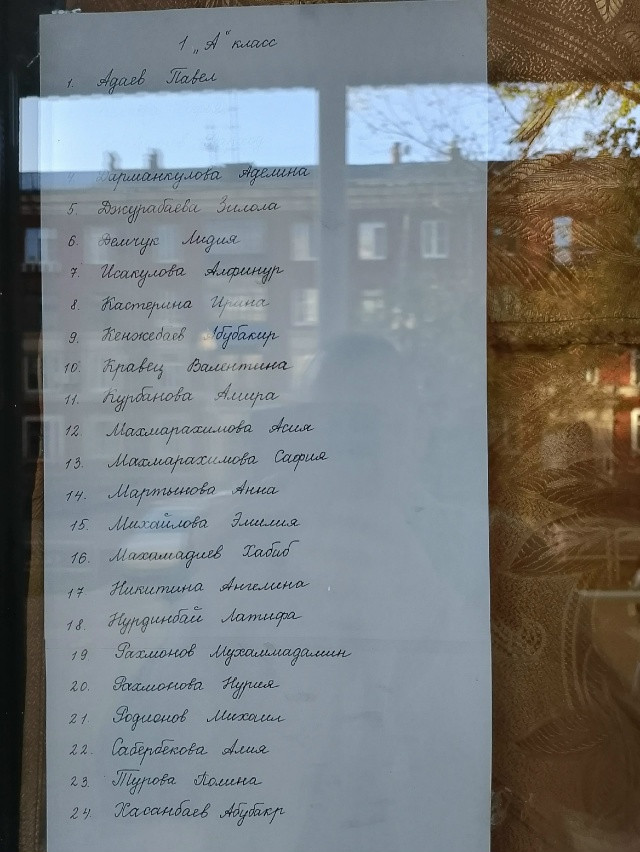 1 „А" класс
1. Адаев Павел
Аделина
5. Джурабаева Зилола
6. Демчук Лидия
7. Исакулова Алфинур
8. Кастерина Ирина
9. Кенжебаев Абубакир
10. Кравец Валентина
11. Курбанова Амира
12. Махмарахимова Асия
13. Махмарахимова София
14. Мартынова Анна
15. Михайлова Эмилия
16. Махамадиев Хабиб
17 Никитина Ангелина
18. Нурдинбай Латифа
19. Рахмонов Мухаммадамин
20. Рахмонова Нурия
21. Родионов Михаил
22. Сабербекова Алия
23. Турова Полина
24. Хасанбаев Абубакр